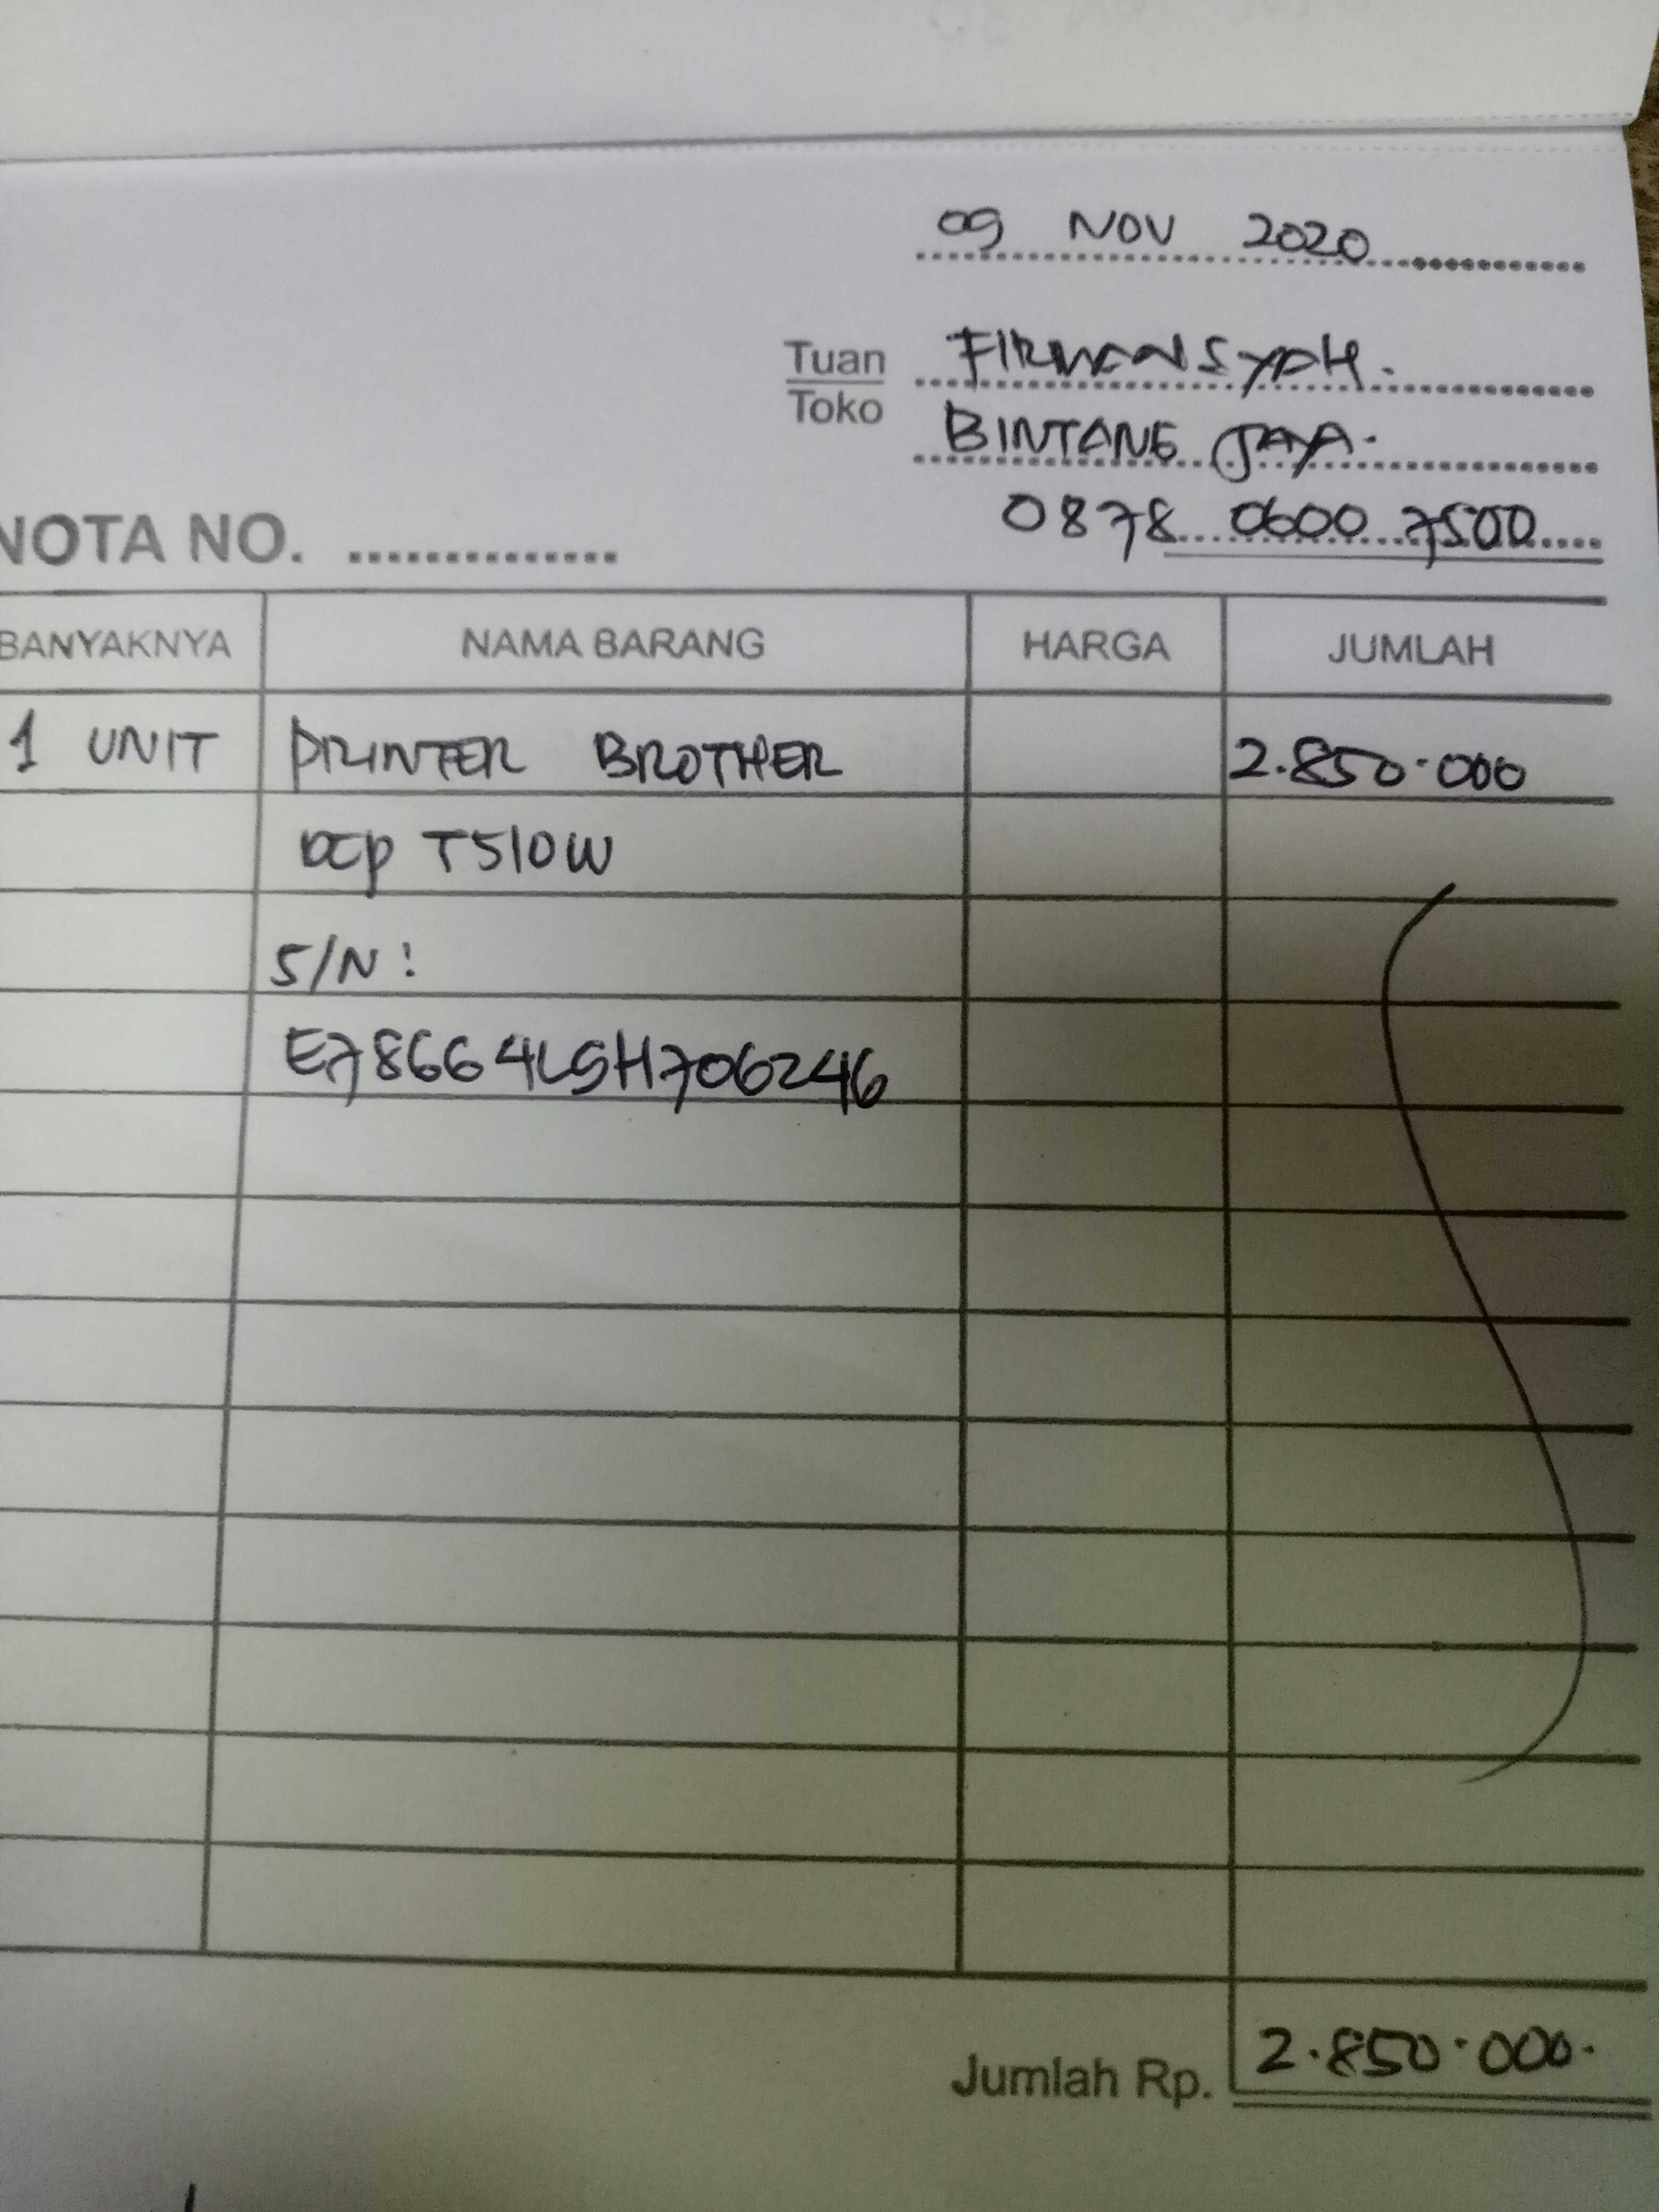 09 NOV 2020
Tuan FIRMANSYAH.
Toko BINTANG JAYA.
0878 0600 7500
NOTA NO. ..............
BANYAKNYA NAMA BARANG HARGA JUMLAH
1 UNIT PRINTER BROTHER 2.850.000
DCP T510W
S/N :
E78664L9H706246
Jumlah Rp. 2.850.000.